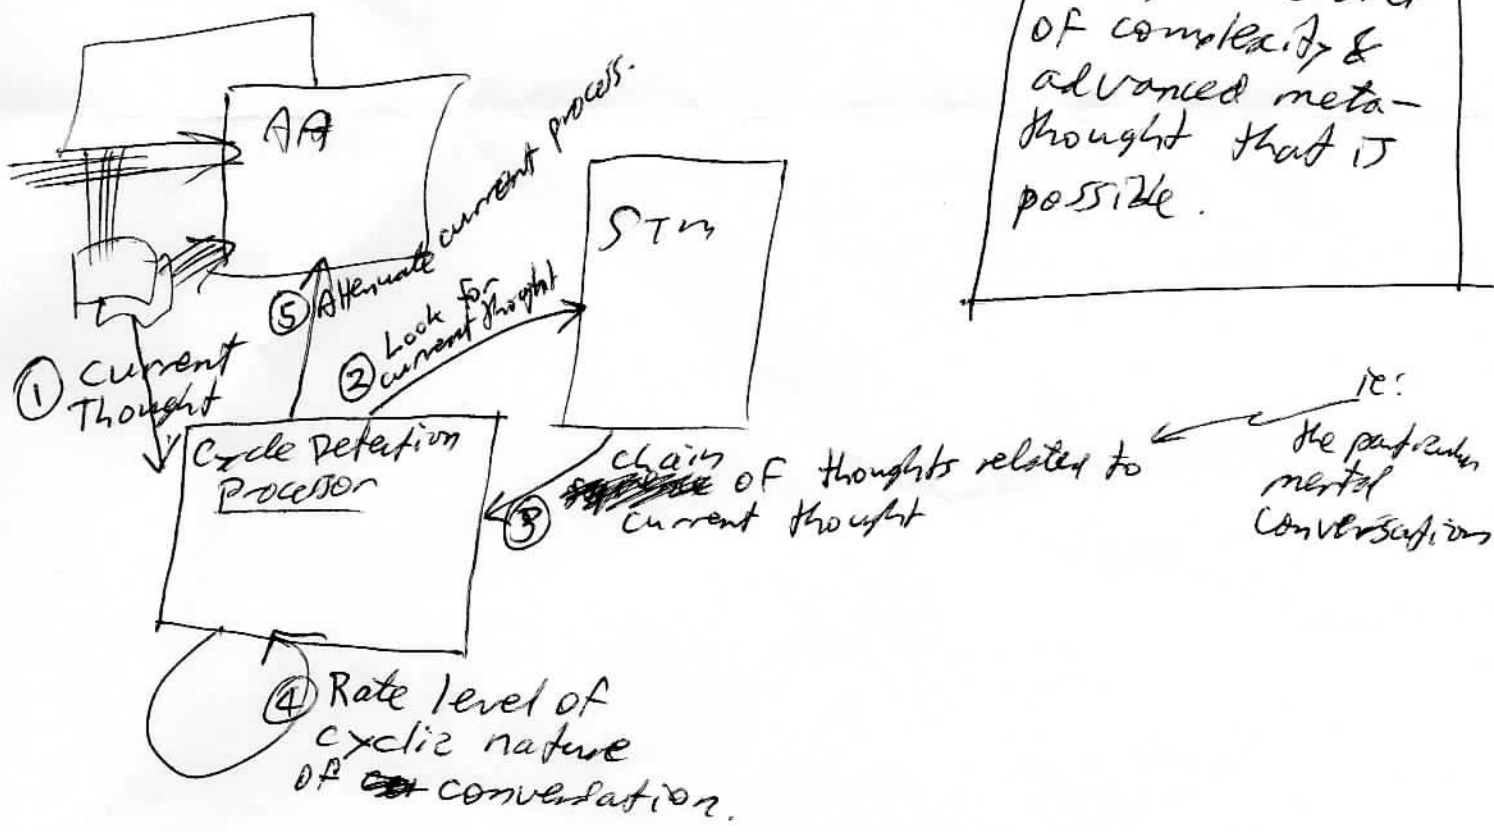 of complexity &
advanced meta-
thought that is
possible.
AA
STM
⑤ Attenuate current process.
② Look for
current thought
① Current
Thought
Cycle Detection
Processor
③ chain of thoughts related to
current thought
ie:
the particular
mental
conversation
④ Rate level of
cyclic nature
of conversation.